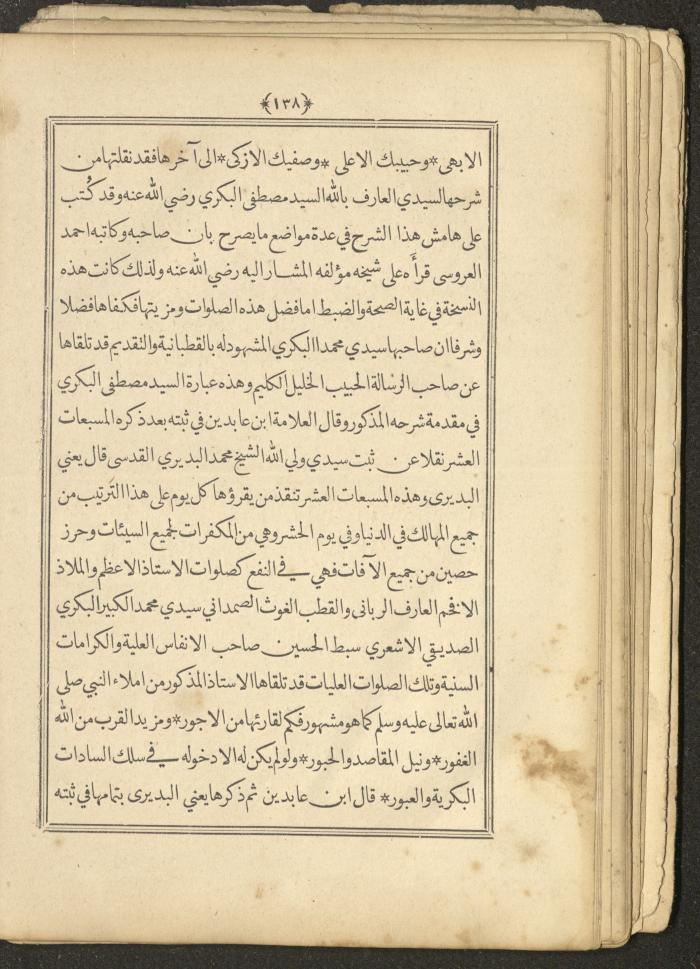 ﴿١٣٨﴾
الابهى * وحبيبك الاعلى * وصفيك الازكى * الى آخرها فقد نقلتها من
شرحها لسيدي العارف بالله السيد مصطفى البكري رضي الله عنه وقد كُتب
على هامش هذا الشرح في عدة مواضع ما يصرح بان صاحبه وكاتبه احمد
العروسى قرأه على شيخه مؤلفه المشار اليه رضي الله عنه ولذلك كانت هذه
النسخة في غاية الصحة والضبط اما فضل هذه الصلوات ومزيتها فكفاها فضلا
وشرفا ان صاحبها سيدي محمدا البكري المشهود له بالقطبانية والتقديم قد تلقاها
عن صاحب الرسالة الحبيب الخليل الكليم وهذه عبارة السيد مصطفى البكري
في مقدمة شرحه المذكور وقال العلامة ابن عابدين في ثبته بعد ذكره المسبعات
العشر نقلا عن ثبت سيدي ولي الله الشيخ محمد البديري القدسى قال يعني
البديرى وهذه المسبعات العشر تنقذ من يقرؤها كل يوم على هذا الترتيب من
جميع المهالك في الدنيا وفي يوم الحشر وهي من المكفرات لجميع السيئات وحرز
حصين من جميع الآفات فهي في النفع كصلوات الاستاذ الاعظم والملاذ
الافخم العارف الربانى والقطب الغوث الصمداني سيدي محمد الكبير البكري
الصديقي الاشعري سبط الحسين صاحب الانفاس العلية والكرامات
السنية وتلك الصلوات العليات قد تلقاها الاستاذ المذكور من املاء النبي صلى
الله تعالى عليه وسلم كما هو مشهور فكم لقارئها من الاجور * ومزيد القرب من الله
الغفور * ونيل المقاصد والحبور * ولو لم يكن له الا دخوله في سلك السادات
البكرية والعبور * قال ابن عابدين ثم ذكرها يعني البديرى بتمامها في ثبته